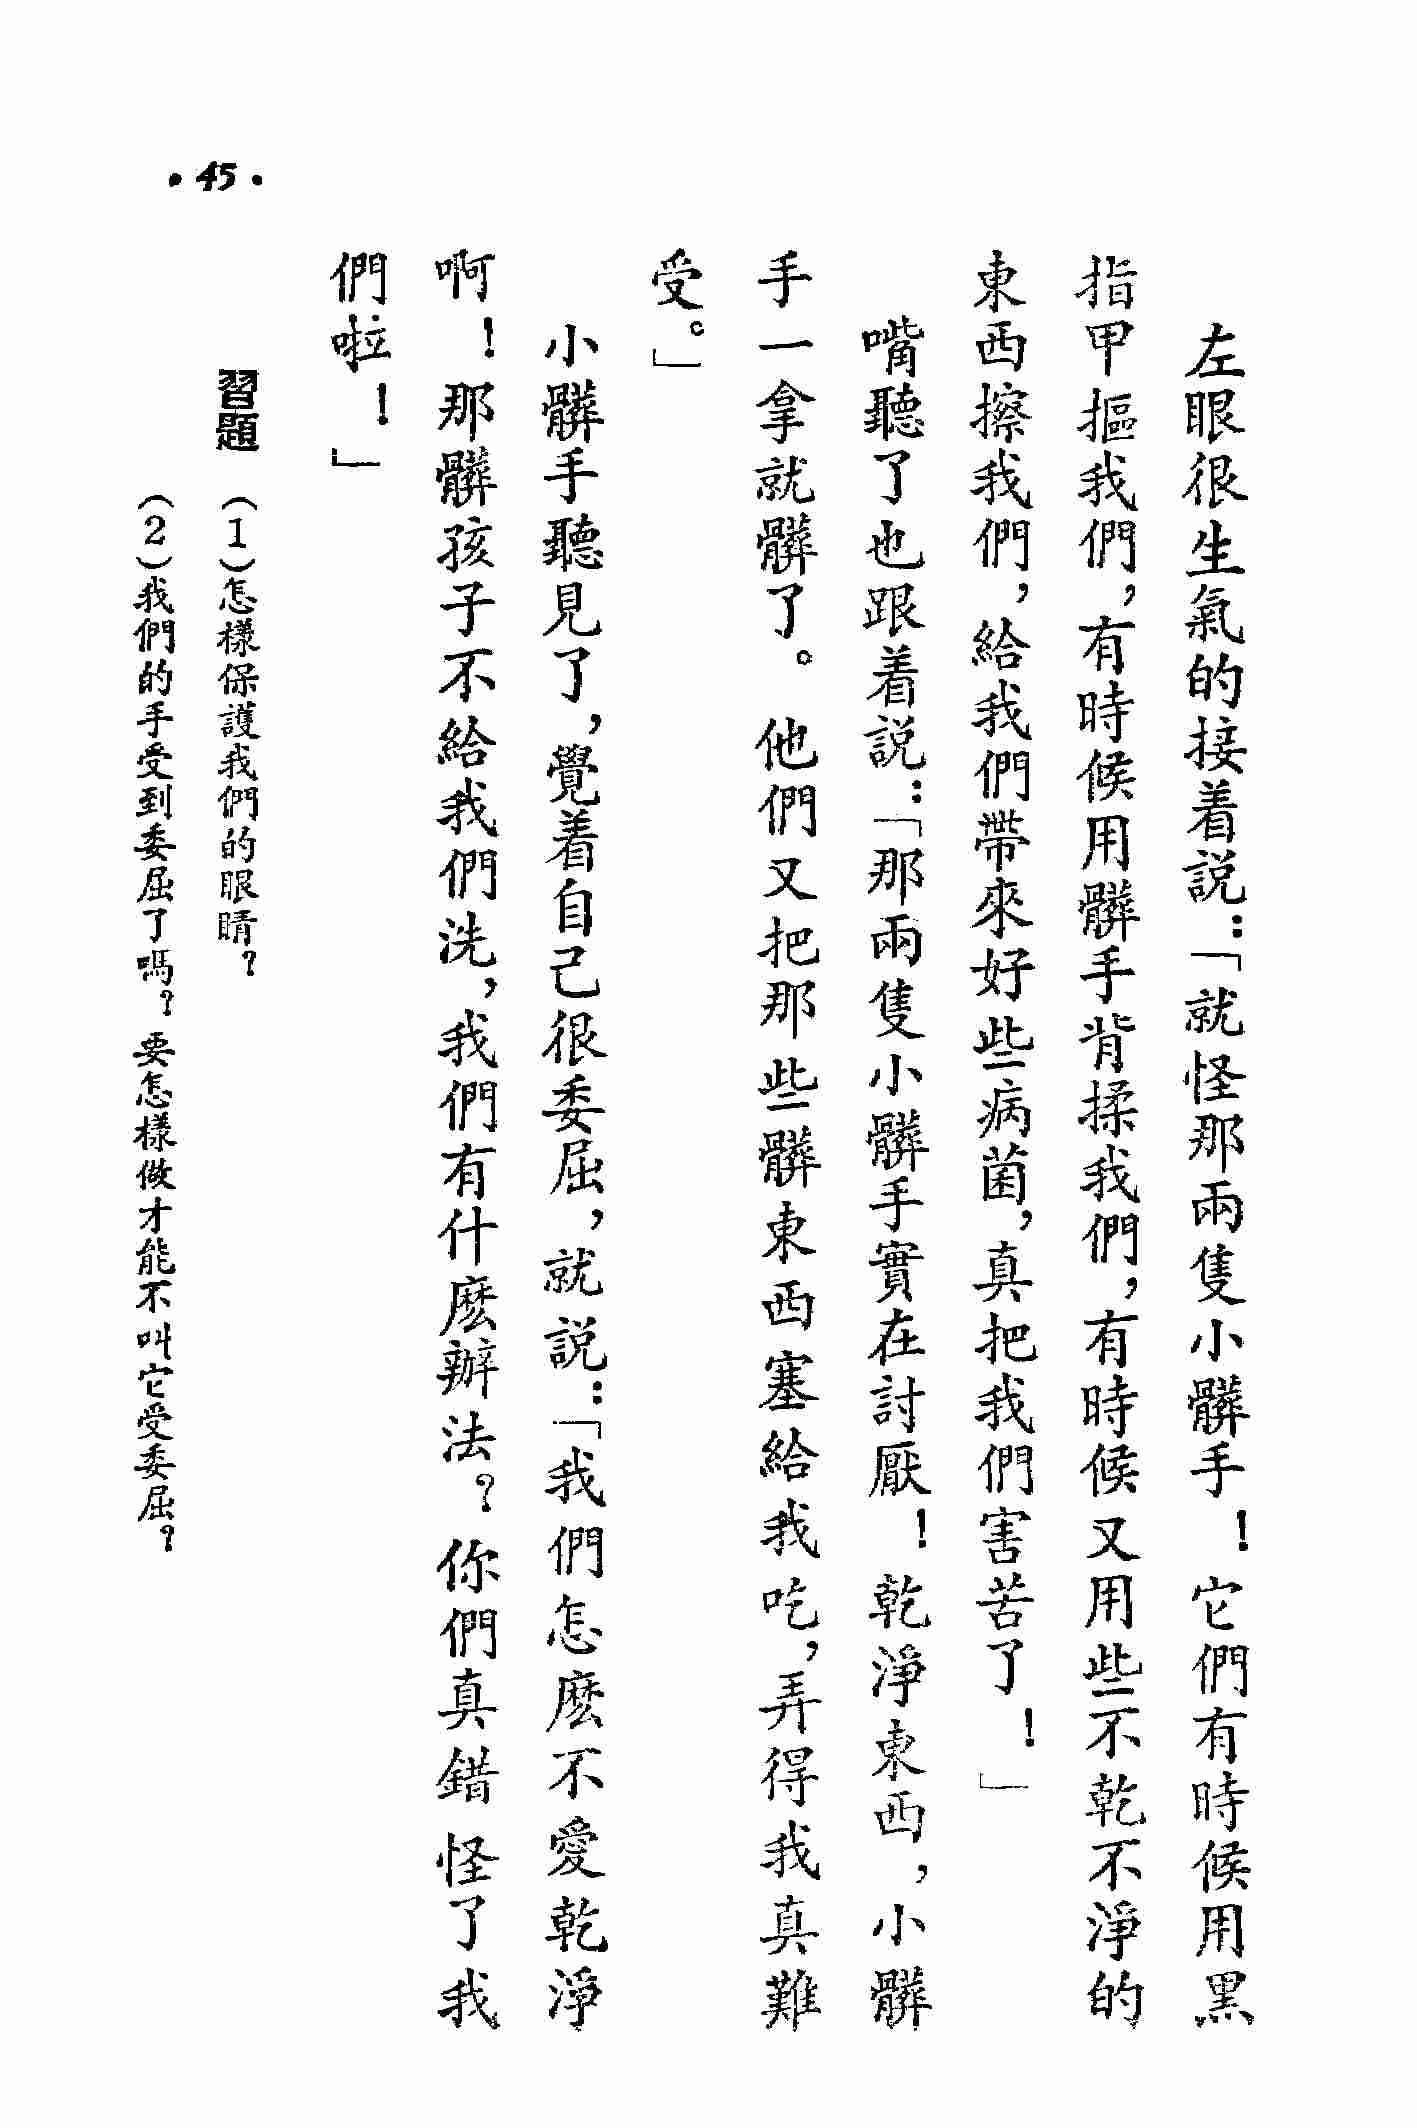 左眼很生氣的接着説：「就怪那兩隻小髒手！它們有時候用黑
指甲摳我們，有時候用髒手背揉我們，有時候又用些不乾不淨的
東西擦我們，給我們帶來好些病菌，真把我們害苦了！」
嘴聽了也跟着説：「那兩隻小髒手實在討厭！乾淨東西，小髒
手一拿就髒了。他們又把那些髒東西塞給我吃，弄得我真難
受。」
小髒手聽見了，覺着自己很委屈，就説：「我們怎麽不愛乾淨
啊！那髒孩子不給我們洗，我們有什麽辦法？你們真錯怪了我
們啦！」
習題 （1）怎樣保護我們的眼睛？
（2）我們的手受到委屈了嗎？要怎樣做才能不叫它受委屈？
•45•